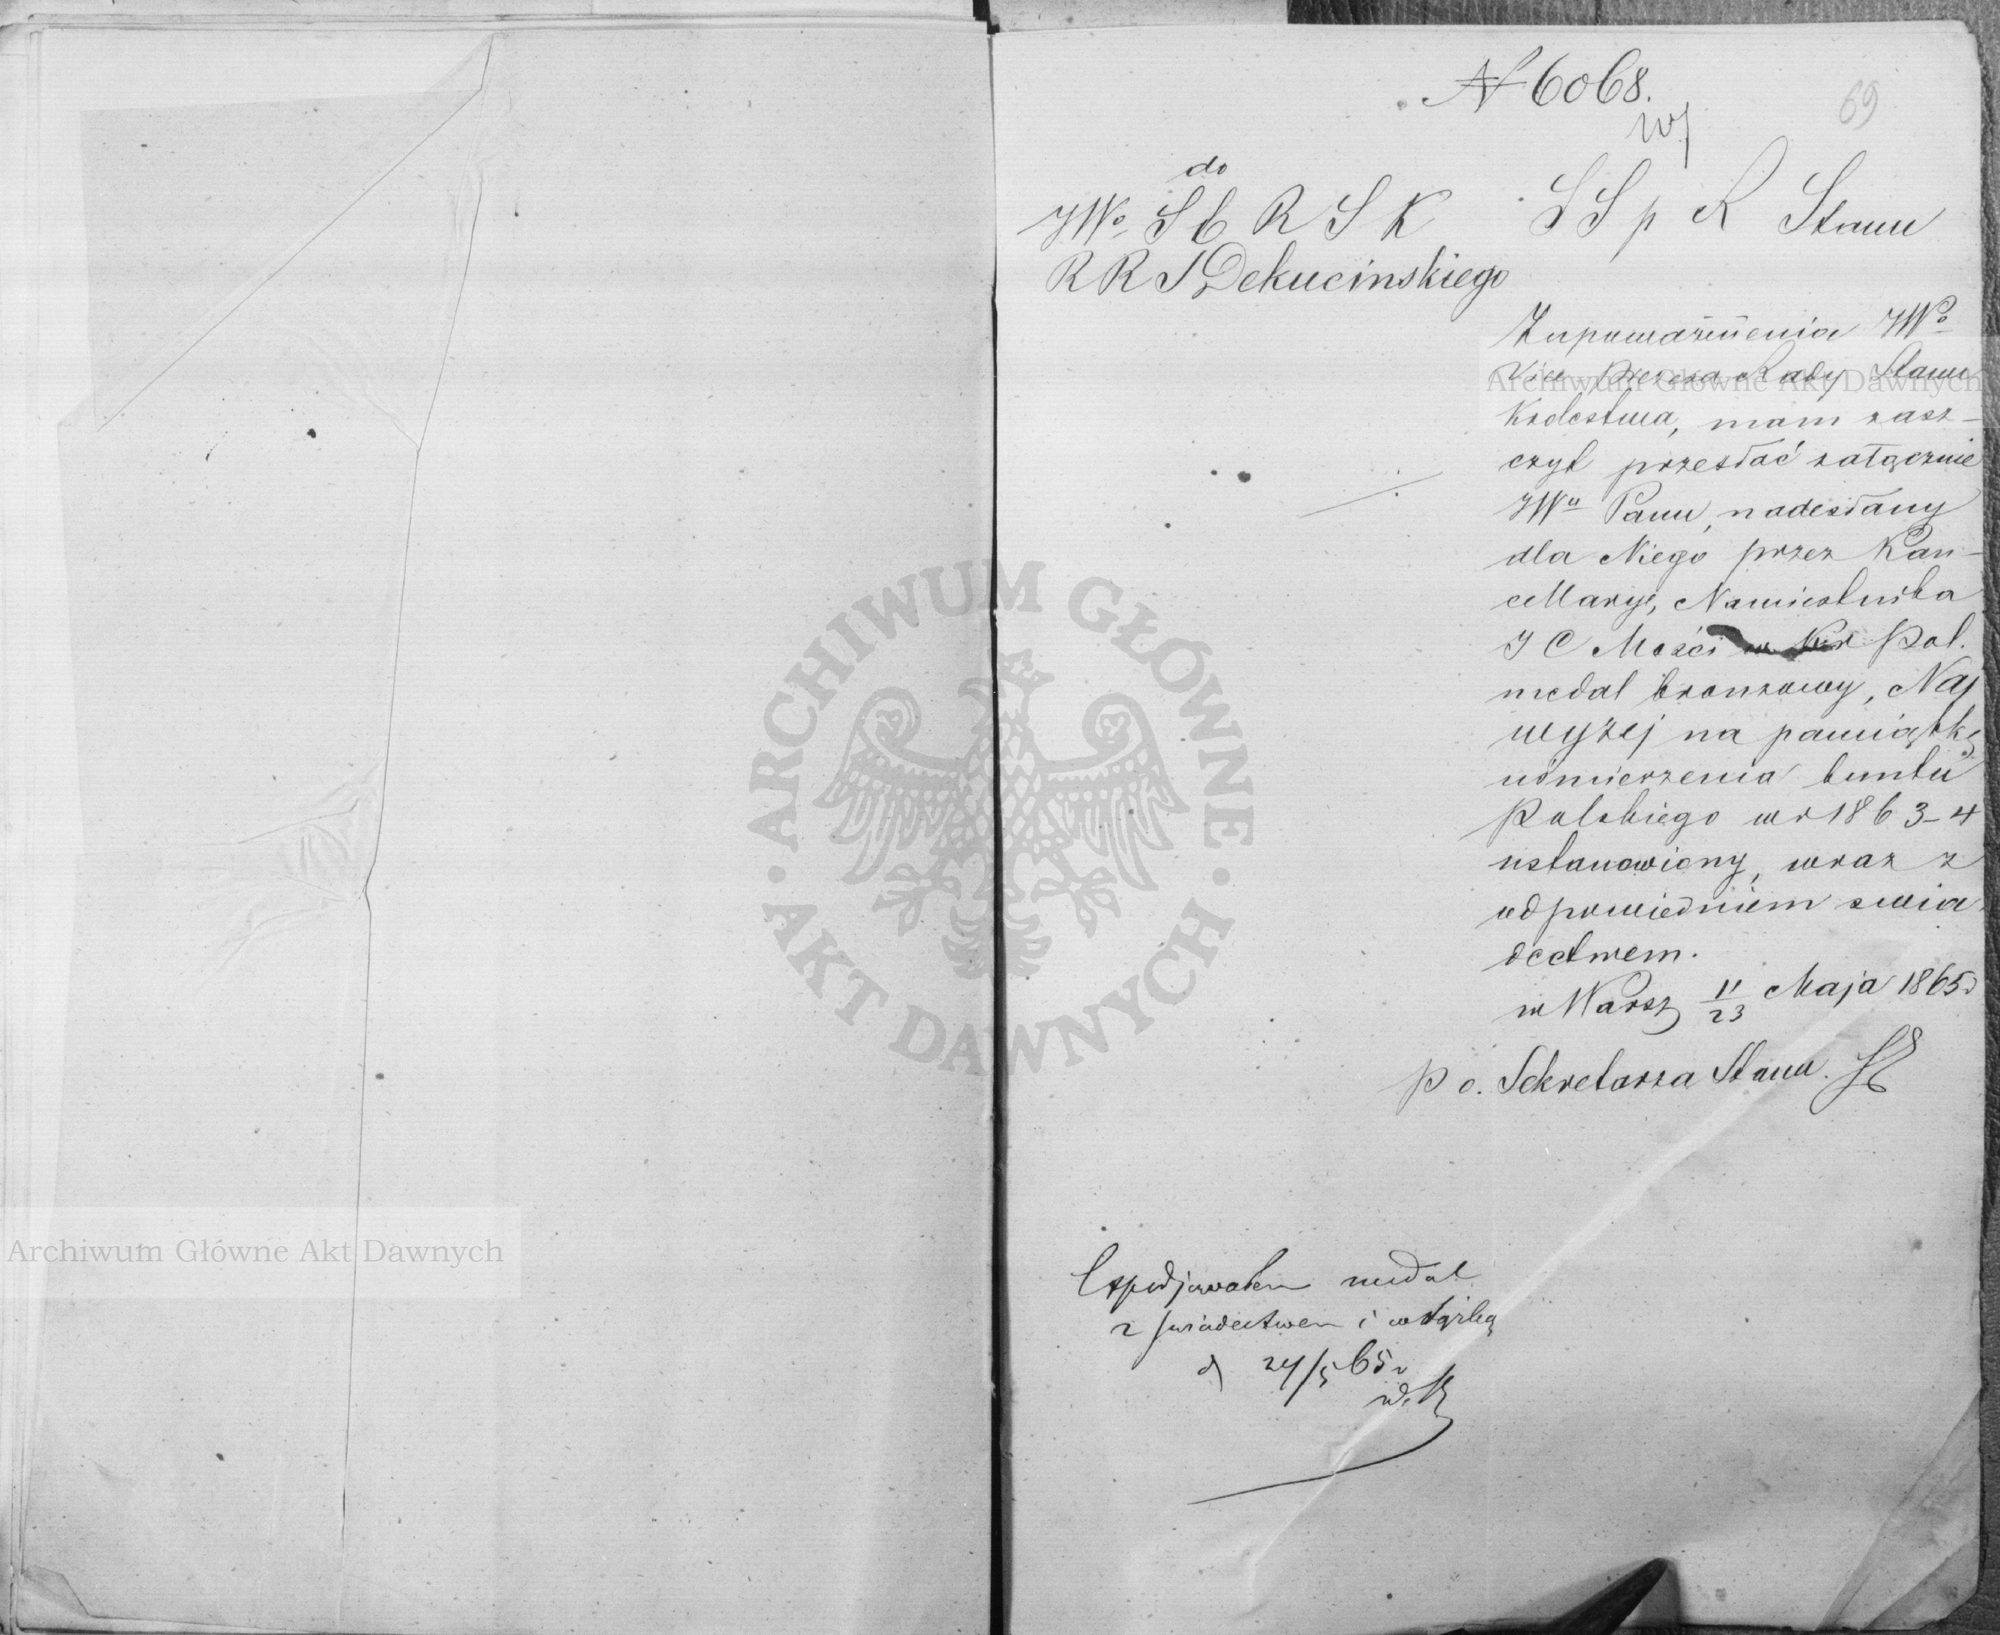 N 6068.
69
do
JWo S E R S K
R R S Dekucinskiego
S S p R Stanu
Z upoważnienia JWo
Vice Prezesa Rady Stanu
Królestwa, mam zasz-
czyt przesłać załącznie
JWu Panu, nadesłany
dla Niego przez Kan-
cellaryę, Namiestnika
J C Mości w Kr Pol.
medal bronzowy, Naj
wyżej na pamiątkę
uśmierzenia buntu
Polskiego w r 1863-4
ustanowiony, wraz z
odpowiedniem świa
dectwem.
w Warsz 11/23 Maja 1865 r
p o. Sekretarza Stanu.
Expedjowałem medal
z świadectwem i wstążką
d 24/5 65 r
Archiwum Główne Akt Dawnych
Archiwum Główne Akt Dawnych
· ARCHIWUM GŁÓWNE · AKT DAWNYCH